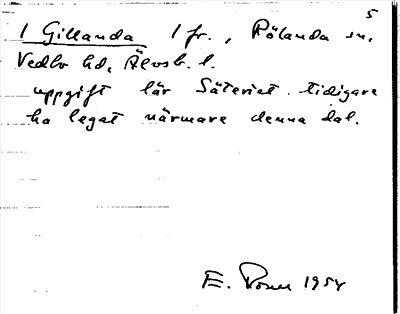 5
1 Gillanda 1 fr., Rölanda sn.
Vedbo hd, Älvsb. l.
uppgift lär Säteriet tidigare
ha legat närmare denna dal.
E. 1954